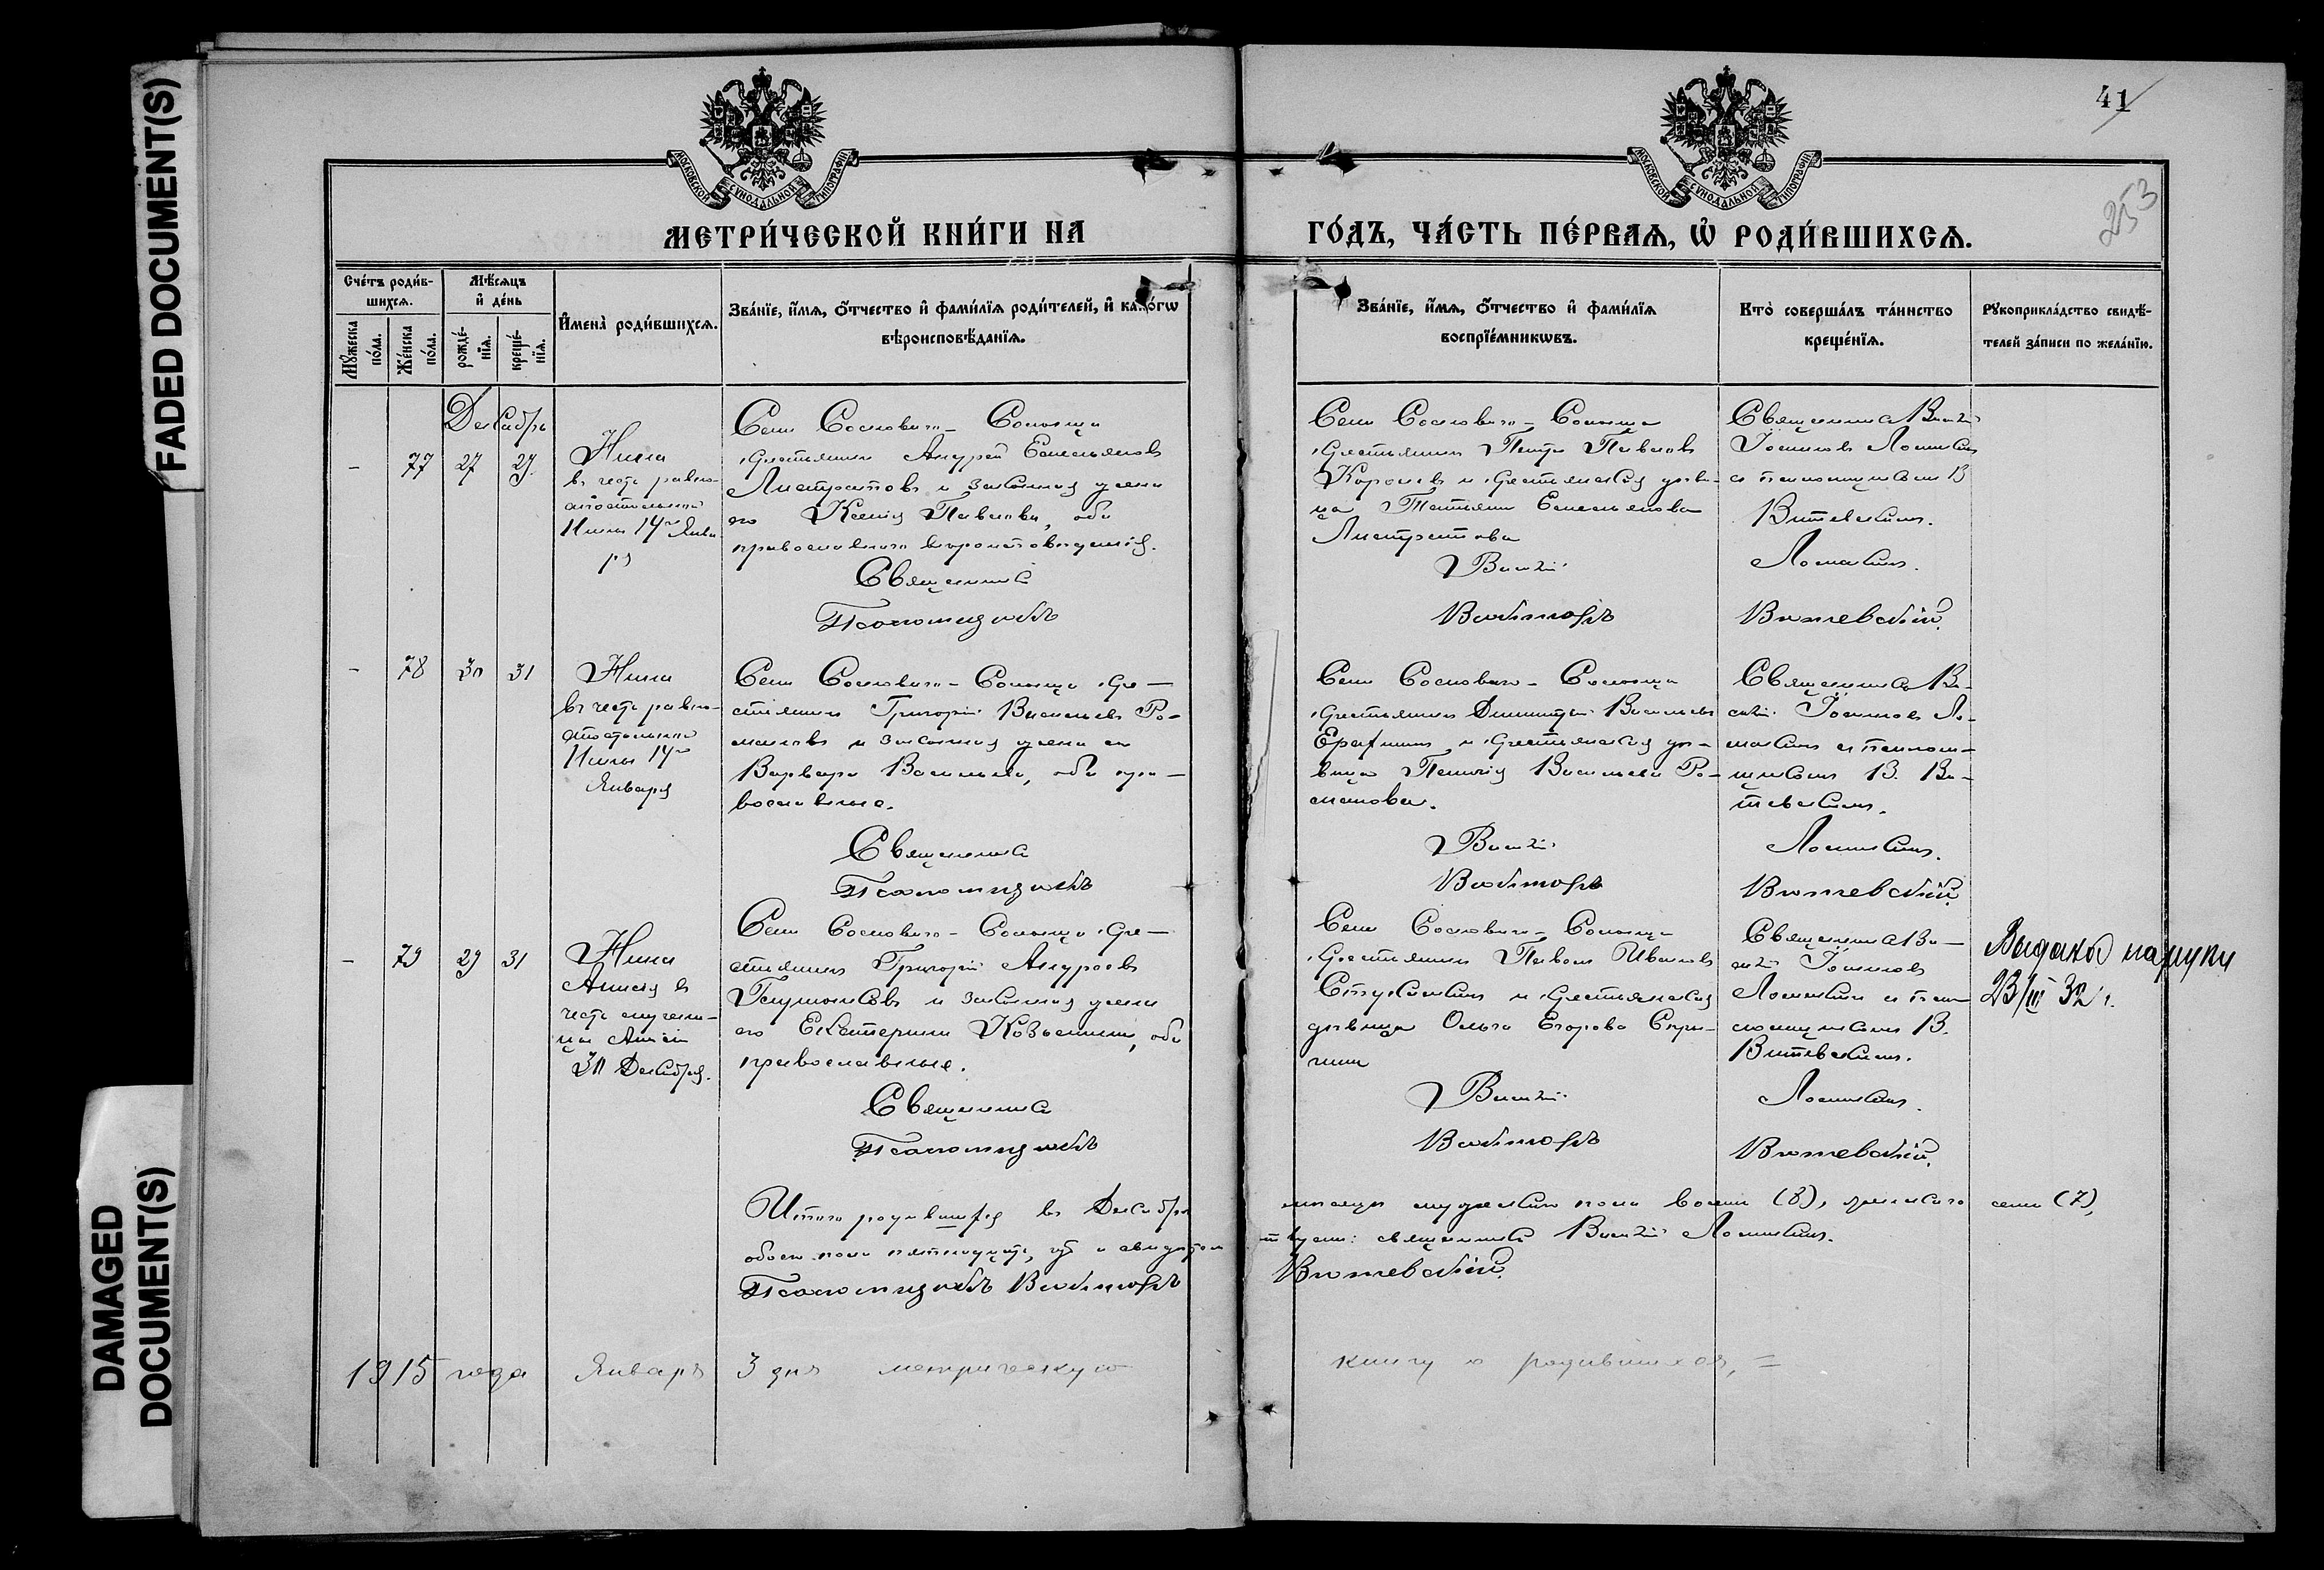 FADED DOCUMENT(S)
DAMAGED
DOCUMENT(S)
41
253
МОСКОВСКОЙ СѴНОДАЛЬНОЙ ТИПОГРАФІИ
МОСКОВСКОЙ СѴНОДАЛЬНОЙ ТИПОГРАФІИ
МЕТРИ́ЧЕСКОЙ КНИ́ГИ НА
ГО́ДЪ, ЧА́СТЬ ПЕ́РВАѦ, Ѡ҆ РОДИ́ВШИХСѦ.
Сче́тъ роди́в-
шихсѧ.
Мꙋ́жеска по́ла.
Же́нска по́ла.
Мѣ́сѧцъ
и҆ де́нь
рожде́-
нїѧ.
креще́-
нїѧ.
И҆мена̀ роди́вшихсѧ.
Зва́нїе, и҆́мѧ, ѻ҆́тчество и҆ фами́лїѧ роди́телей, и҆ како́гѡ
вѣроисповѣ́данїѧ.
Зва́нїе, и҆́мѧ, ѻ҆́тчество и҆ фами́лїѧ
воспрїе́мникѡвъ.
Кто̀ соверша́лъ та́инство
креще́нїѧ.
Рꙋкоприкла́дство свидѣ́-
телей за́писи по жела́нїю.
Декабрь
- 77 27 29.
Нина
въ честь равно-
апостольной
Нины 14го Янва
ря
Села Сосноваго-Солонца
крестьянинъ Андрей Емельяновъ
и законная жена
его Ксенія Павлова, оба
православнаго вѣроисповѣданія.
Священникъ
Псаломщикъ
Села Сосноваго-Солонца
крестьянинъ Петръ Павловъ
и крестьянская дѣви-
ца Татьяна Емельянова
Василій
Викторъ
Священникъ Василій
Іоанновъ Ломакинъ
съ псаломщикомъ В
Витевскимъ.
Ломакинъ.
Витевскій.
- 78 30 31
Нина
въ честь равно-
апостольной
Нины 14го
Января
Села Сосноваго-Солонца кре-
стьянинъ Григорій Васильевъ Ро-
мановъ и законная жена его
Варвара Васильева, оба пра-
вославные.
Священникъ
Псаломщикъ
Села Сосноваго-Солонца
крестьянинъ Димитрій Васильевъ
и крестьянская дѣ-
вица Васильева Ро-
манова.
Василій
Викторъ
Священникъ Ва-
силій Іоанновъ Ло-
макинъ съ псалом-
щикомъ В. Ви-
тевскимъ.
Ломакинъ.
Витевскій.
- 79 29 31
Нина
Анисія въ
честь мучени-
цы Анисіи
30 Декабря.
Села Сосноваго-Солонца кре-
стьянинъ Григорій Андреевъ
и законная жена
его Екатерина Козьмина, оба
православные.
Священникъ
Псаломщикъ
Села Сосноваго-Солонца
крестьянинъ Павелъ Ивановъ
и крестьянская
дѣвица Ольга Егорова
Василій
Викторъ
Священникъ Ва-
силій Іоанновъ
Ломакинъ съ пса-
ломщикомъ В.
Витевскимъ.
Ломакинъ.
Витевскій.
на руки
23/III 32 г.
Итого родившихся въ Декабрѣ
мѣсяцѣ мужскаго пола восемь (8), женскаго семь (7),
обоего пола пятнадцать, что и свидѣтель-
ствуемъ: священникъ Василій Ломакинъ.
Псаломщикъ Викторъ
Витевскій.
1915 года Январь 3 дня метрическую
книгу о родившихся, =